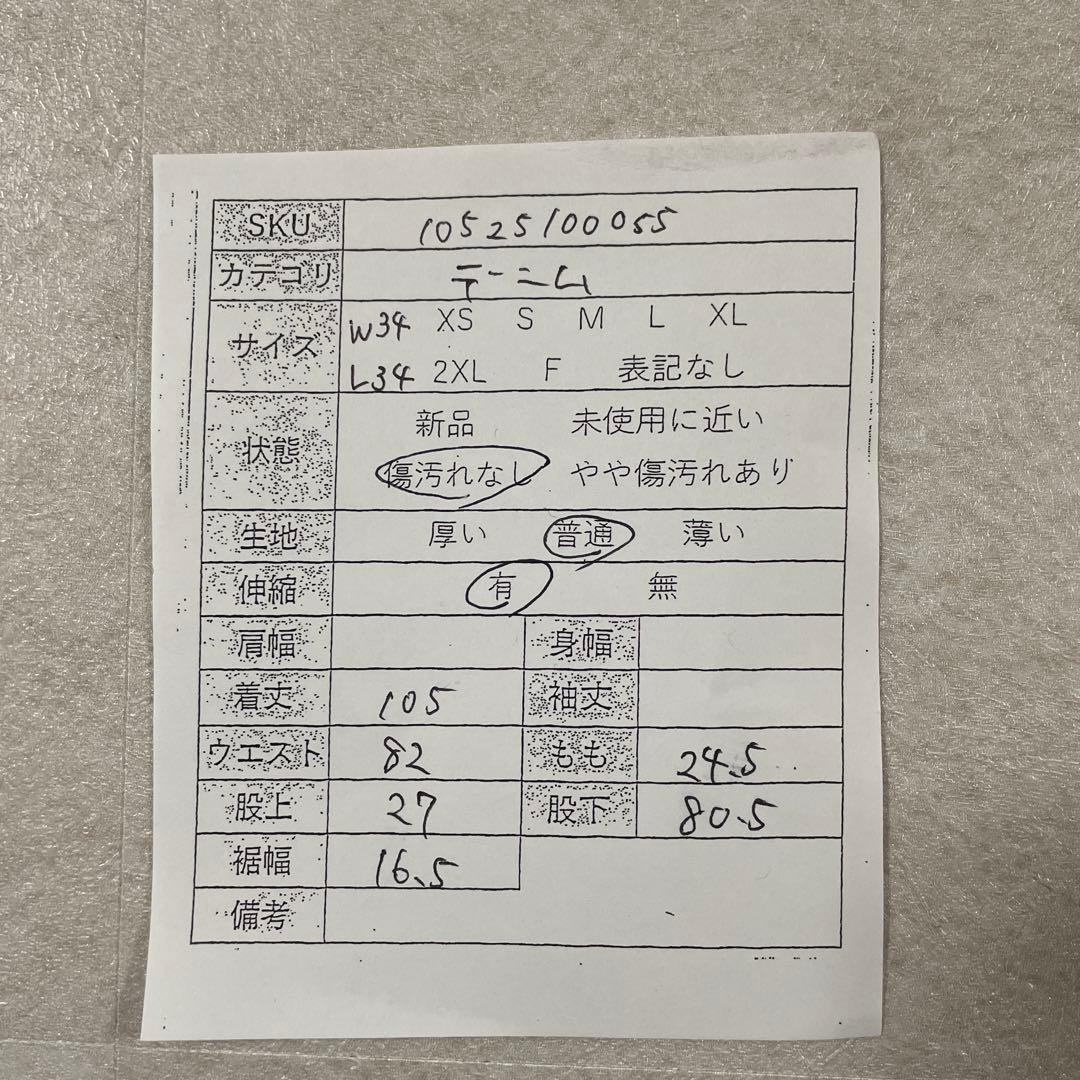 SKU 10525100055
カテゴリ デニム
サイズ W34 XS S M L XL
L34 2XL F 表記なし
状態 新品 未使用に近い
傷汚れなし やや傷汚れあり
生地 厚い 普通 薄い
伸縮 有 無
肩幅 身幅
着丈 105 袖丈
ウエスト 82 もも 24.5
股上 27 股下 80.5
裾幅 16.5
備考